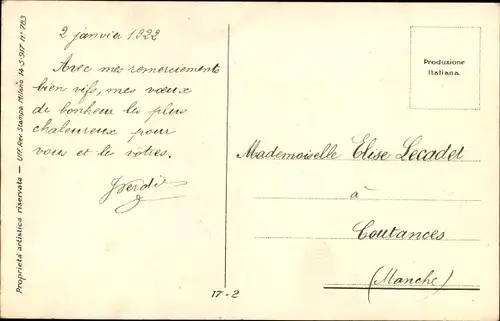 Proprietà artistica riservata — Uff. Rev. Stampa Milano 14-5-917 N° 783
2 janvier 1922
Avec mes remerciements
bien vifs, mes vœux
de bonheur les plus
chaleureux pour
vous et les vôtres.
Produzione
Italiana.
Mademoiselle Elise Lecadet
à
Coutances
(Manche)
17-2